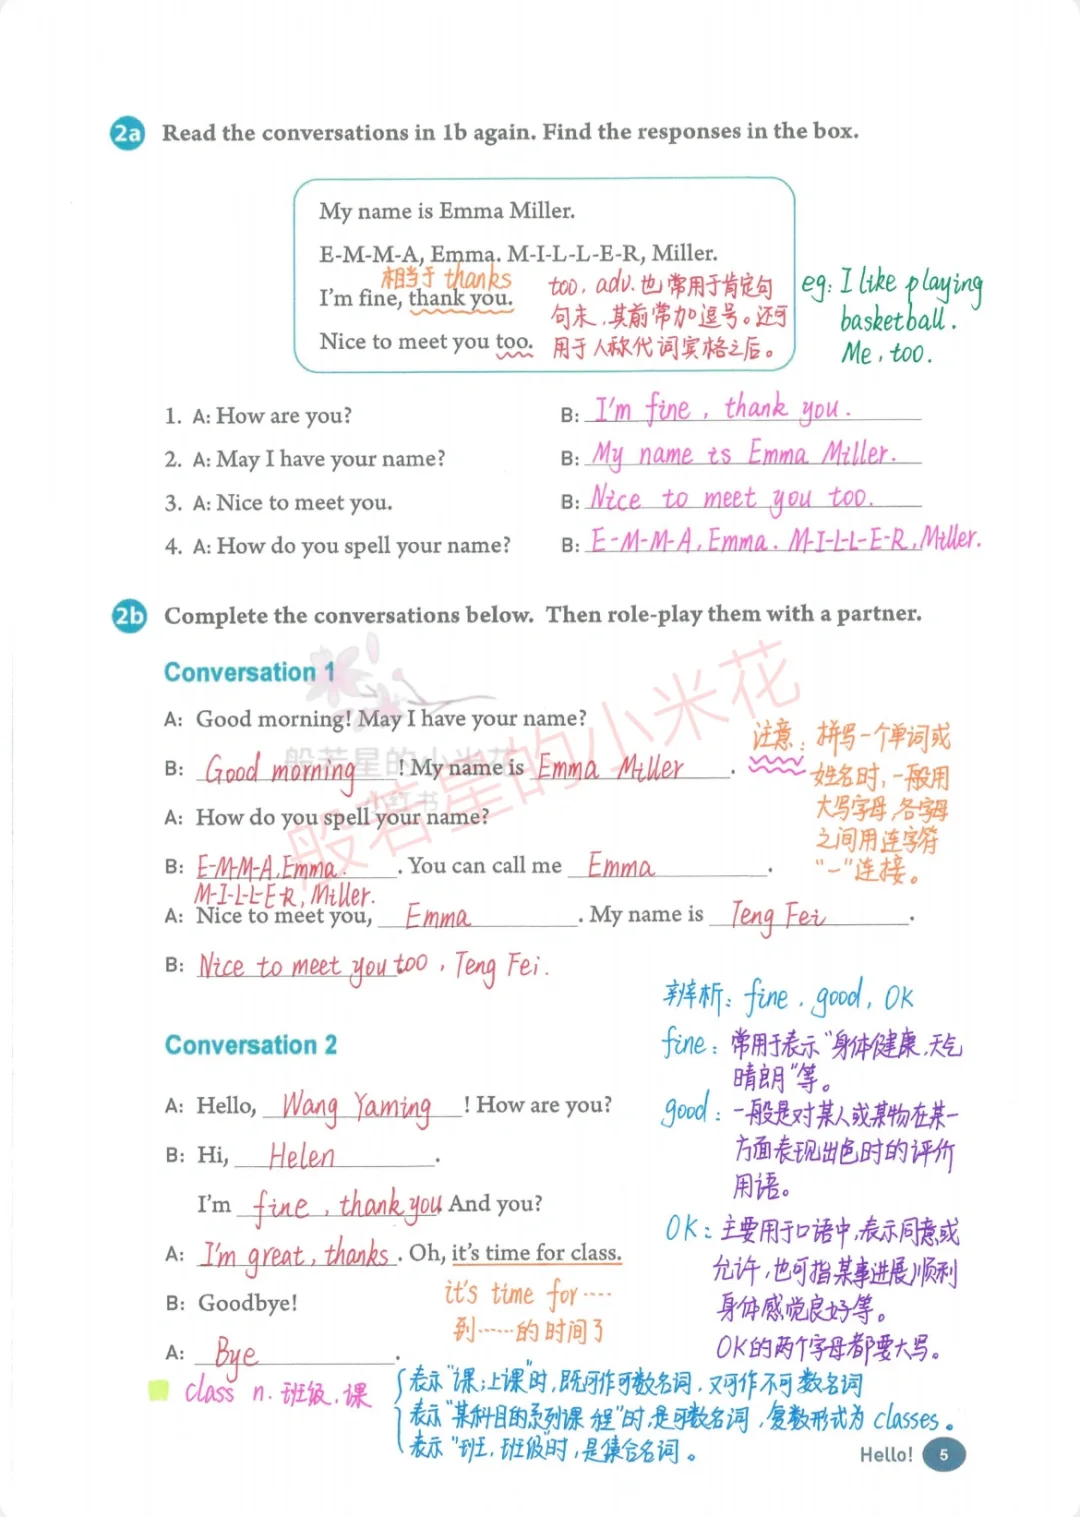 2a Read the conversations in 1b again. Find the responses in the box.
My name is Emma Miller.
E-M-M-A, Emma. M-I-L-L-E-R, Miller.
相当于 thanks
I'm fine, thank you.
Nice to meet you too.
too, adv. 也,常用于肯定句
句末,其前常加逗号。还可
用于人称代词宾格之后。
eg: I like playing
basketball.
Me, too.
1. A: How are you? B: I'm fine, thank you.
2. A: May I have your name? B: My name is Emma Miller.
3. A: Nice to meet you. B: Nice to meet you too.
4. A: How do you spell your name? B: E-M-M-A, Emma. M-I-L-L-E-R, Miller.
2b Complete the conversations below. Then role-play them with a partner.
Conversation 1
A: Good morning! May I have your name?
B: Good morning! My name is Emma Miller.
A: How do you spell your name?
B: E-M-M-A, Emma. You can call me Emma.
M-I-L-L-E-R, Miller.
A: Nice to meet you, Emma. My name is Teng Fei.
B: Nice to meet you too, Teng Fei.
注意: 拼写一个单词或
姓名时,一般用
大写字母,各字母
之间用连字符
"-"连接。
般若星的小米花
般若星的小米花
小红书
Conversation 2
A: Hello, Wang Yaming! How are you?
B: Hi, Helen.
I'm fine, thank you. And you?
A: I'm great, thanks. Oh, it's time for class.
it's time for ····
到······的时间了
B: Goodbye!
A: Bye.
辨析: fine, good, OK
fine: 常用于表示"身体健康,天气
晴朗"等。
good: 一般是对某人或某物在某一
方面表现出色时的评价
用语。
OK: 主要用于口语中,表示同意或
允许,也可指某事进展顺利
身体感觉良好等。
OK的两个字母都要大写。
class n. 班级,课
表示"课;上课"时,既可作可数名词,又可作不可数名词
表示"某科目的系列课程"时,是可数名词,复数形式为 classes。
表示"班,班级"时,是集合名词。
Hello! 5